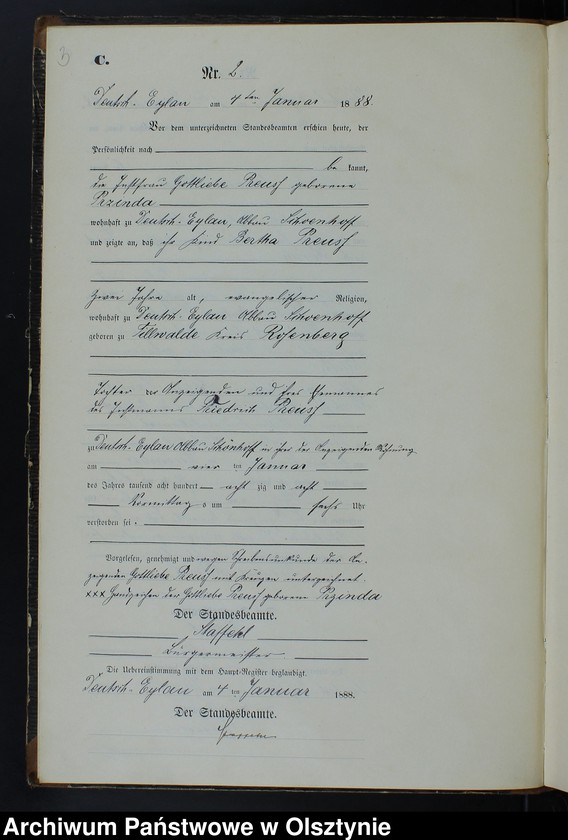 3
C.
Nr. 2.
Deutsch-Eylau am 4ten Januar 1888.
Vor dem unterzeichneten Standesbeamten erschien heute, der
Persönlichkeit nach
be kannt,
die Instfrau Gottliebe Preuss geborene
Przinda
wohnhaft zu Deutsch-Eylau, Abbau Schoenhoff
und zeigte an, daß ihr Kind Bertha Preuss
zwei Jahre alt, evangelischer Religion,
wohnhaft zu Deutsch-Eylau Abbau Schoenhoff
geboren zu Tillwalde Kreis Rosenberg
Tochter der Anzeigenden und ihres Ehemannes
des Instmannes Friedrich Preuss
zu Deutsch-Eylau Abbau Schönhoff in ihrer der Anzeigenden Wohnung
am vier ten Januar
des Jahres tausend acht hundert acht zig und acht
Vormittags um sechs Uhr
verstorben sei.
Vorgelesen, genehmigt und wegen Schreibensunkunde der An-
zeigenden Gottliebe Preuss mit Kreuzen unterzeichnet.
xxx Handzeichen der Gottliebe Preuss geborene Przinda
Der Standesbeamte.
Staffehl
Bürgermeister
Die Uebereinstimmung mit dem Haupt-Register beglaubigt.
Deutsch-Eylau am 4 ten Januar 1888.
Der Standesbeamte.
Archiwum Państwowe w Olsztynie